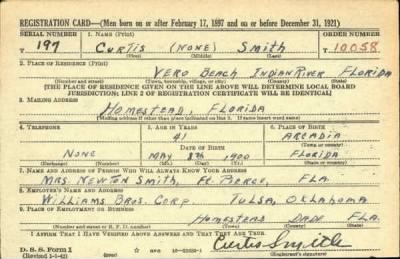 REGISTRATION CARD—(Men born on or after February 17, 1897 and on or before December 31, 1921)
SERIAL NUMBER 1. NAME (Print) ORDER NUMBER
T 197 CURTIS (NONE) SMITH T 10058
(First) (Middle) (Last)
2. PLACE OF RESIDENCE (Print)
VERO BEACH INDIAN RIVER FLORIDA
(Number and street) (Town, township, village, or city) (County) (State)
[THE PLACE OF RESIDENCE GIVEN ON THE LINE ABOVE WILL DETERMINE LOCAL BOARD
JURISDICTION; LINE 2 OF REGISTRATION CERTIFICATE WILL BE IDENTICAL]
3. MAILING ADDRESS
HOMESTEAD, FLORIDA
[Mailing address if other than place indicated on line 2. If same insert word same]
4. TELEPHONE 5. AGE IN YEARS 6. PLACE OF BIRTH
41 ARCADIA
DATE OF BIRTH (Town or county)
NONE MAY 8TH 1900 FLORIDA
(Exchange) (Number) (Mo.) (Day) (Yr.) (State or country)
7. NAME AND ADDRESS OF PERSON WHO WILL ALWAYS KNOW YOUR ADDRESS
MRS. NEWTON SMITH, FT. PIERCE, FLA.
8. EMPLOYER'S NAME AND ADDRESS
WILLIAMS BROS. CORP. TULSA, OKLAHOMA
9. PLACE OF EMPLOYMENT OR BUSINESS
HOMESTEAD DADE FLA.
(Number and street or R. F. D. number) (Town) (County) (State)
I AFFIRM THAT I HAVE VERIFIED ABOVE ANSWERS AND THAT THEY ARE TRUE.
D. S. S. Form 1
(Revised 1-1-42) (over) Curtis Smith
(Registrant's signature)